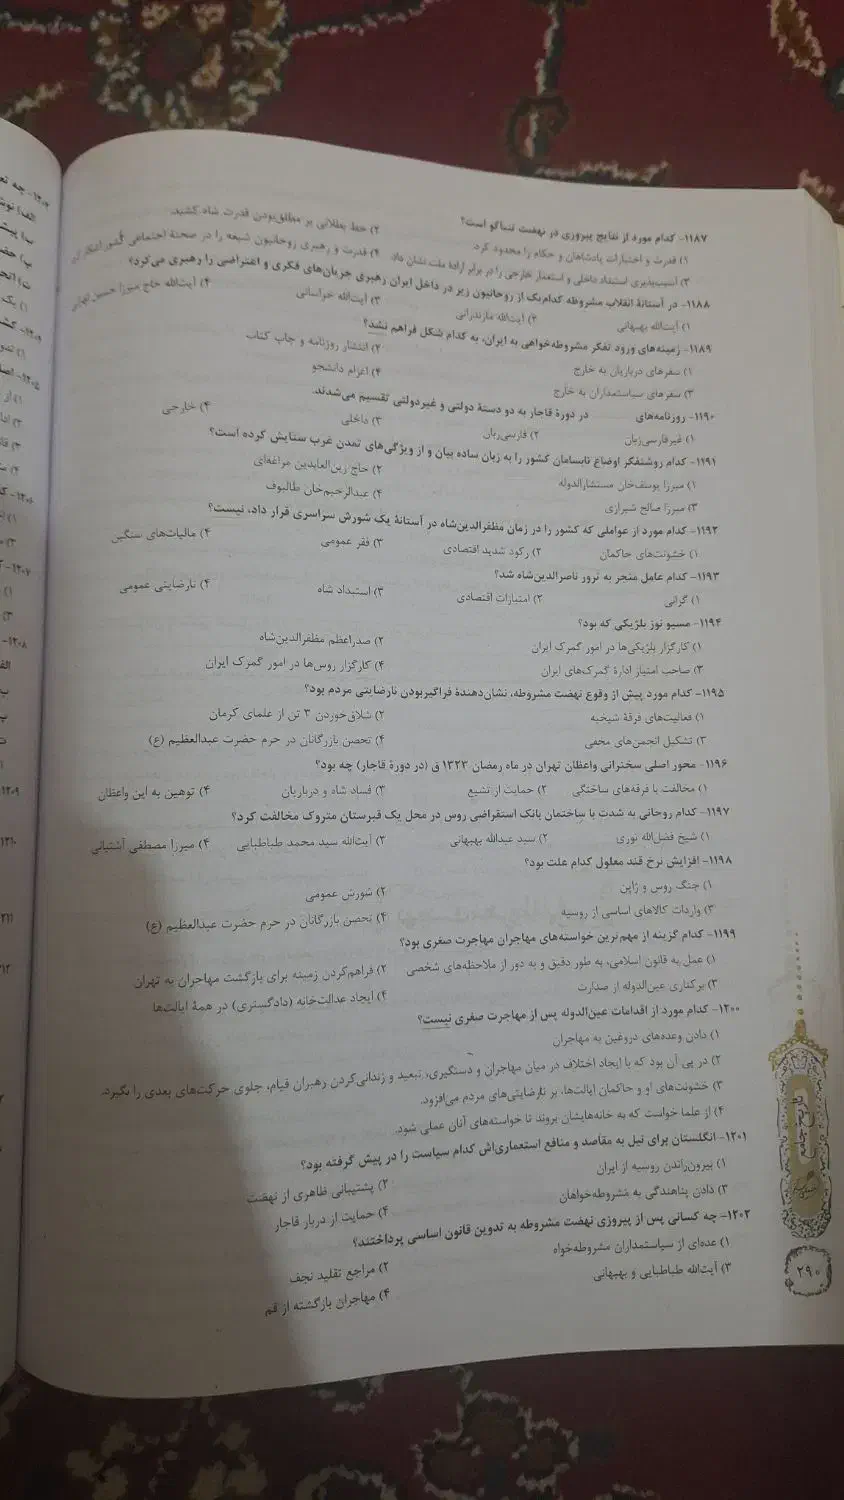 ۱۱۸۷- کدام مورد از نتایج پیروزی در نهضت تنباکو است؟
۱) قدرت و اختیارات پادشاهان و حکام را محدود کرد. ۲) خط بطلانی بر مطلق‌بودن قدرت شاه کشید.
۳) آسیب‌پذیری استبداد داخلی و استعمار خارجی را در برابر ارادهٔ ملت نشان داد. ۴) قدرت و رهبری روحانیون شیعه را در صحنهٔ اجتماعی کشور آشکار کرد.
۱۱۸۸- در آستانهٔ انقلاب مشروطه کدام‌یک از روحانیون زیر در داخل ایران رهبری جریان‌های فکری و اعتراضی را رهبری می‌کرد؟
۱) آیت‌الله بهبهانی ۲) آیت‌الله مازندرانی ۳) آیت‌الله خراسانی ۴) آیت‌الله حاج میرزا حسین تهرانی
۱۱۸۹- زمینه‌های ورود تفکر مشروطه‌خواهی به ایران، به کدام شکل فراهم نشد؟
۱) سفرهای درباریان به خارج ۲) انتشار روزنامه و چاپ کتاب
۳) سفرهای سیاستمداران به خارج ۴) اعزام دانشجو
۱۱۹۰- روزنامه‌های در دورهٔ قاجار به دو دستهٔ دولتی و غیردولتی تقسیم می‌شدند.
۱) غیرفارسی‌زبان ۲) فارسی‌زبان ۳) داخلی ۴) خارجی
۱۱۹۱- کدام روشنفکر اوضاع نابسامان کشور را به زبان ساده بیان و از ویژگی‌های تمدن غرب ستایش کرده است؟
۱) میرزا یوسف‌خان مستشارالدوله ۲) حاج زین‌العابدین مراغه‌ای
۳) میرزا صالح شیرازی ۴) عبدالرحیم‌خان طالبوف
۱۱۹۲- کدام مورد از عواملی که کشور را در زمان مظفرالدین‌شاه در آستانهٔ یک شورش سراسری قرار داد، نیست؟
۱) خشونت‌های حاکمان ۲) رکود شدید اقتصادی ۳) فقر عمومی ۴) مالیات‌های سنگین
۱۱۹۳- کدام عامل منجر به ترور ناصرالدین‌شاه شد؟
۱) گرانی ۲) امتیازات اقتصادی ۳) استبداد شاه ۴) نارضایتی عمومی
۱۱۹۴- مسیو نوز بلژیکی که بود؟
۱) کارگزار بلژیکی‌ها در امور گمرک ایران ۲) صدراعظم مظفرالدین‌شاه
۳) صاحب امتیاز ادارهٔ گمرک‌های ایران ۴) کارگزار روس‌ها در امور گمرک ایران
۱۱۹۵- کدام مورد پیش از وقوع نهضت مشروطه، نشان‌دهندهٔ فراگیربودن نارضایتی مردم بود؟
۱) فعالیت‌های فرقهٔ شیخیه ۲) شلاق‌خوردن ۳ تن از علمای کرمان
۳) تشکیل انجمن‌های مخفی ۴) تحصن بازرگانان در حرم حضرت عبدالعظیم (ع)
۱۱۹۶- محور اصلی سخنرانی واعظان تهران در ماه رمضان ۱۳۲۳ ق (در دورهٔ قاجار) چه بود؟
۱) مخالفت با فرقه‌های ساختگی ۲) حمایت از تشیع ۳) فساد شاه و درباریان ۴) توهین به این واعظان
۱۱۹۷- کدام روحانی به شدت با ساختمان بانک استقراضی روس در محل یک قبرستان متروک مخالفت کرد؟
۱) شیخ فضل‌الله نوری ۲) سید عبدالله بهبهانی ۳) آیت‌الله سید محمد طباطبایی ۴) میرزا مصطفی آشتیانی
۱۱۹۸- افزایش نرخ قند معلول کدام علت بود؟
۱) جنگ روس و ژاپن ۲) شورش عمومی
۳) واردات کالاهای اساسی از روسیه ۴) تحصن بازرگانان در حرم حضرت عبدالعظیم (ع)
۱۱۹۹- کدام گزینه از مهم‌ترین خواسته‌های مهاجران مهاجرت صغری بود؟
۱) عمل به قانون اسلامی، به طور دقیق و به دور از ملاحظه‌های شخصی ۲) فراهم‌کردن زمینه برای بازگشت مهاجران به تهران
۳) برکناری عین‌الدوله از صدارت ۴) ایجاد عدالت‌خانه (دادگستری) در همهٔ ایالت‌ها
۱۲۰۰- کدام مورد از اقدامات عین‌الدوله پس از مهاجرت صغری نیست؟
۱) دادن وعده‌های دروغین به مهاجران
۲) در پی آن بود که با ایجاد اختلاف در میان مهاجران و دستگیری، تبعید و زندانی‌کردن رهبران قیام، جلوی حرکت‌های بعدی را بگیرد.
۳) خشونت‌های او و حاکمان ایالت‌ها، بر نارضایتی‌های مردم می‌افزود.
۴) از علما خواست که به خانه‌هایشان بروند تا خواسته‌های آنان عملی شود.
۱۲۰۱- انگلستان برای نیل به مقاصد و منافع استعماری‌اش کدام سیاست را در پیش گرفته بود؟
۱) بیرون‌راندن روسیه از ایران ۲) پشتیبانی ظاهری از نهضت
۳) دادن پناهندگی به مشروطه‌خواهان ۴) حمایت از دربار قاجار
۱۲۰۲- چه کسانی پس از پیروزی نهضت مشروطه به تدوین قانون اساسی پرداختند؟
۱) عده‌ای از سیاستمداران مشروطه‌خواه ۲) مراجع تقلید نجف
۳) آیت‌الله طباطبایی و بهبهانی ۴) مهاجران بازگشته از قم
تاریخ جامع
۲۹۰